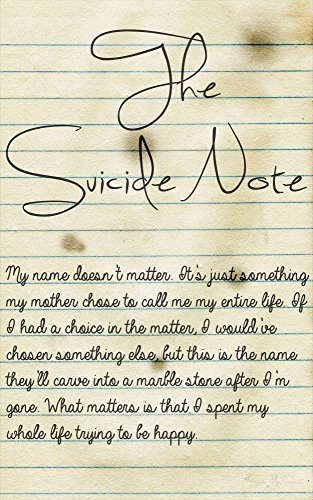 The
Suicide Note
My name doesn't matter. It's just something
my mother chose to call me my entire life. If
I had a choice in the matter, I would've
chosen something else, but this is the name
they'll carve into a marble stone after I'm
gone. What matters is that I spent my
whole life trying to be happy.